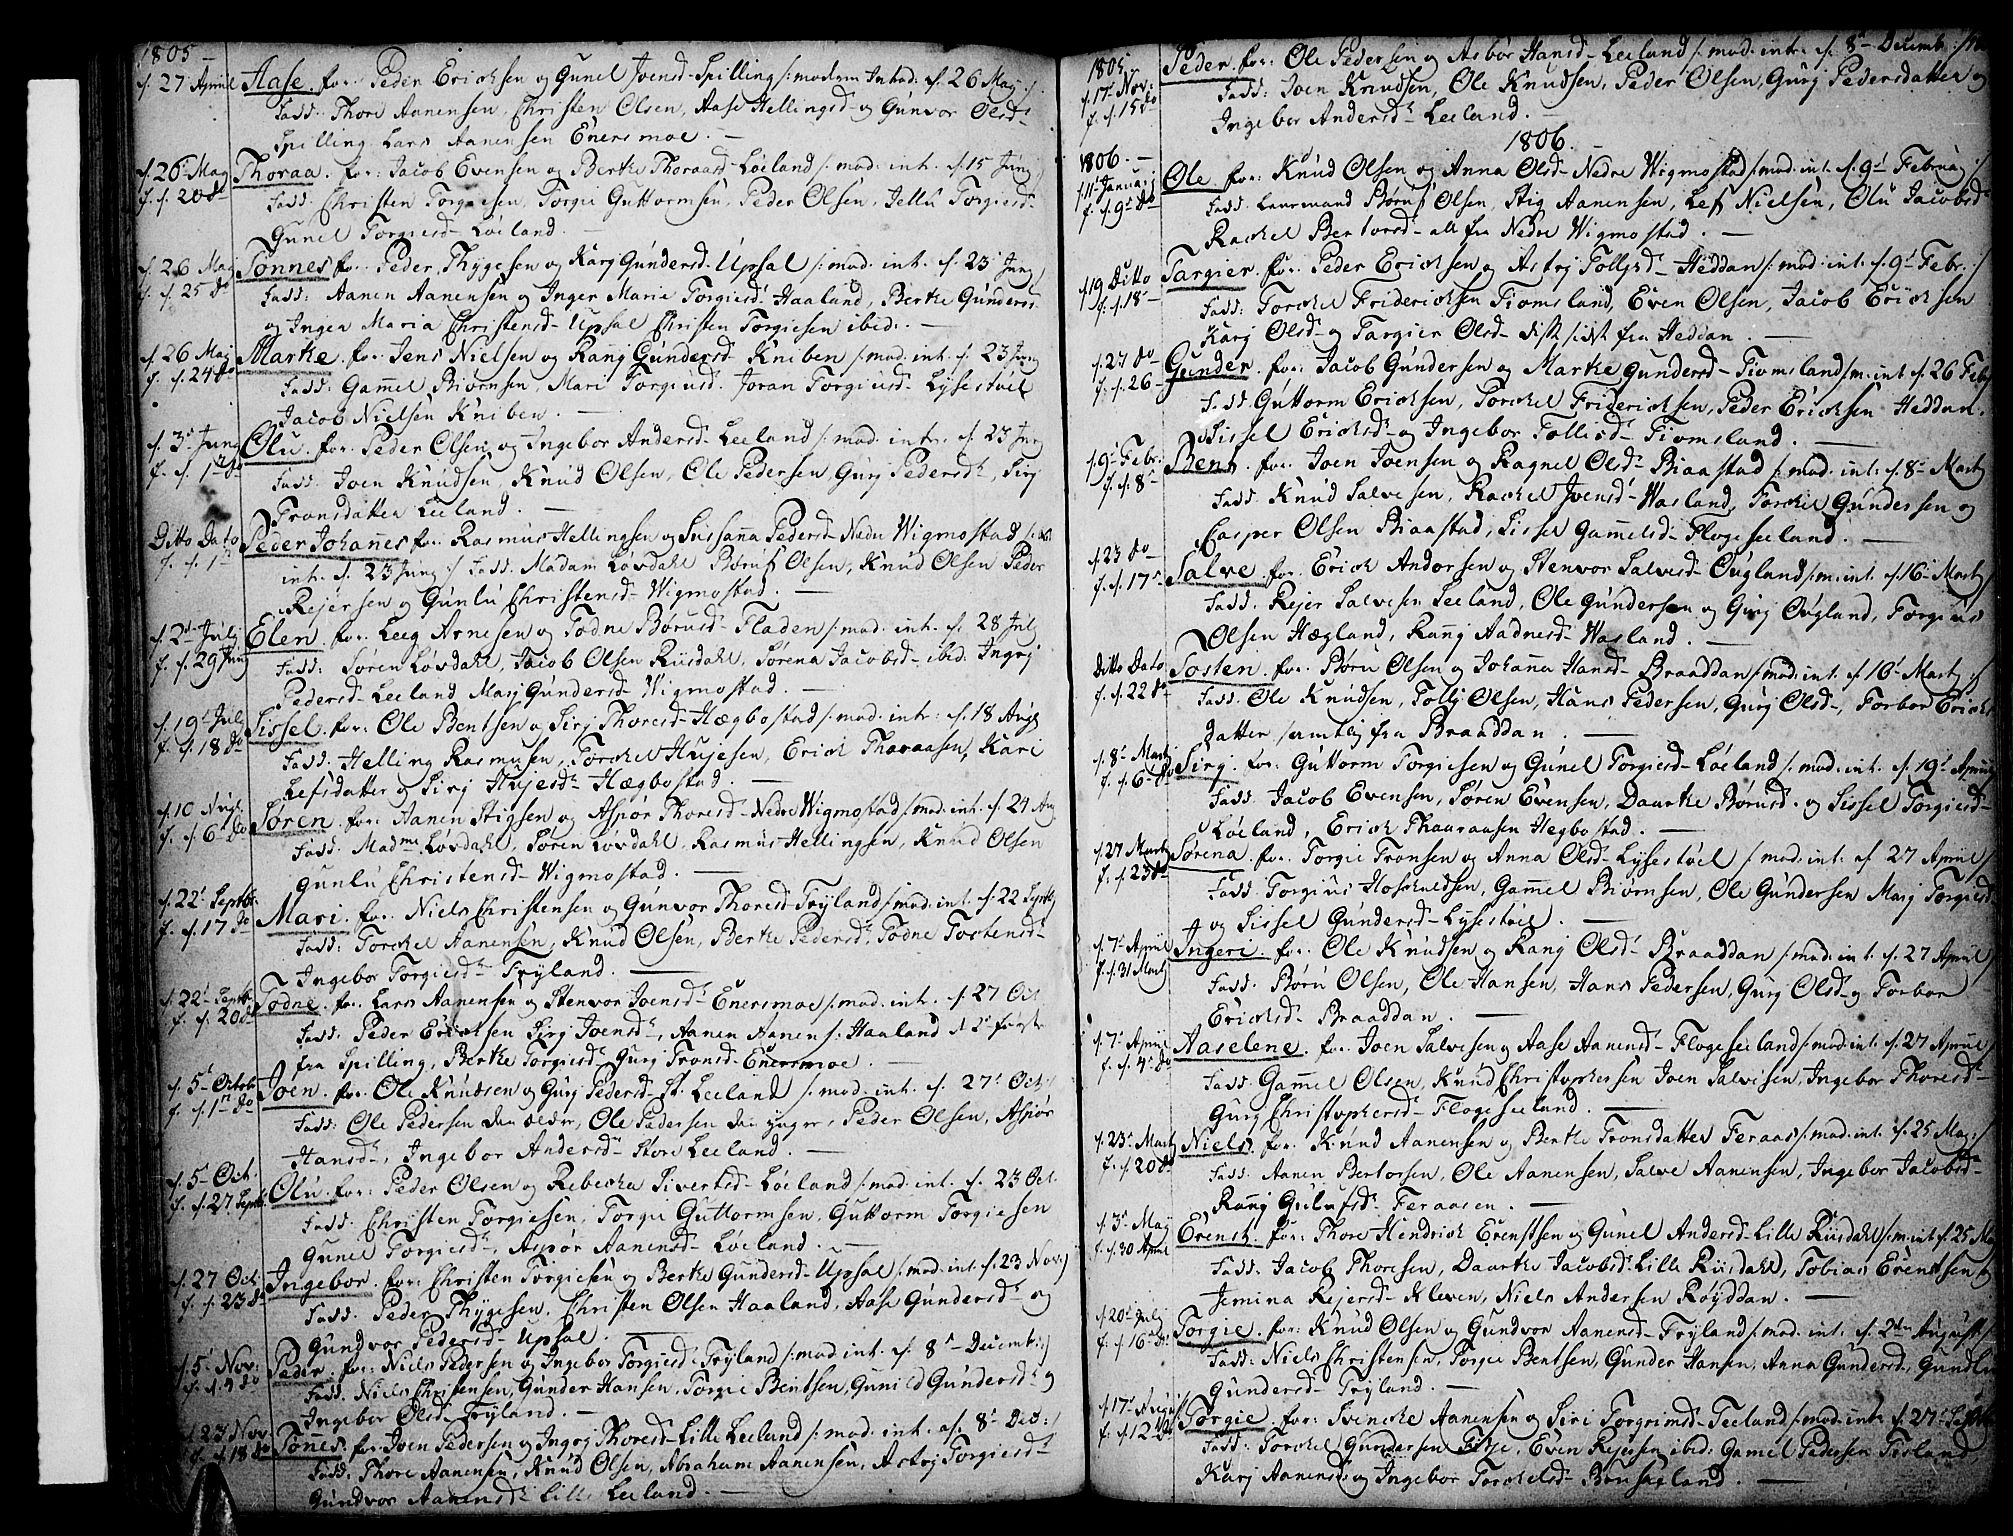 1805 -
d. 27 April Aase. for. Peder Ericksen og Gunel Joensd- Spilling /: modren Introd. d. 26 Maj :/
Fadd: Thore Aanensen, Christen Olsen, Aase Hellingsd- og Gunvor Olsd-
Spilling Lars Aanensen Enersmoe. -
d. 26 Maj Thoraa. for. Jacob Evensen og Berthe Thoraasd- Løeland /: mod. int. d. 15 Junj
f. d. 20 do Fadd. Christen Torgiesen, Torgie Guttormsen, Peder Olsen, Jellu Torgiesd-
Gunel Torgiesd- Løeland.
d. 26 Maj Tønnes for. Peder Thygesen og Karj Gundersd- Upsal /: mod. int. d. 23 Junj
f. d. 25 do Fadd: Aanen Aanensen og Inger Marie Torgiesd- Haaland, Berthe Gundersd-
og Inger Maria Christensd- Upsal Christen Torgiesen ibid. -
d. 26 Maj Marthe. for. Jens Nielsen og Rang Gundersd- Kniben /: mod. int. d. 23 Junj
f. d. 24 do Fadd: Gamel Biørnsen, Mari Torgiusd. Joran Torgiusd- Lysestøel
Jacob Nielsen Kniben. -
d. 3 Junj Olu. for. Peder Olsen og Ingebor Andersd- Leeland /: mod. intr. d. 23 Junj
f. d. 1 do Fadd. Joen Knudsen, Knud Olsen, Ole Pedersen Gurj Pedersd-, Sirj
Tronsdatter Leeland. -
Ditto Dato Peder Johannes for. Rasmus Hellingsen og Sussana Pedersd- Nedre Wigmostad /: mod
f. d. 1 intr. d. 23 Junj :/ Fadd. Madam Løvdahl Børuf Olsen, Knud Olsen Peder
Rejersen og Gunlu Christensd- Wigmostad. -
d. 2 Julj Elen. for. Leeg Arnesen og Todne Børusd- Fladen /: mod. int. d. 28 Julj
f. d. 29 Junj Fadd: Søren Løvdahl, Jacob Olsen Riisdahl, Sørena Jacobsd- ibid. Ingrj
Pedersd- Leeland Marj Gundersd- Wigmostad. -
d. 19 Julj Sissel. for. Ole Bentsen og Sirj Thoresd- Hægbostad /: mod. intr: d. 18 Augs
f. d. 18 do Fadd: Helling Rasmusen, Torckel Hujesen, Erick Thoraasen, Kari
Lefsdatter og Sirj Hujesd- Hægbostad. -
d. 10 Augs Søren. for. Aanen Stigsen og Aspør Thoresd- Nedre Wigmostad /: mod. int. d. 24 Aug
f. d. 6 do Fadd. Madme Løvdahl, Søren Løvdahl, Rasmus Hellingsen, Knud Olsen
Gunlu Christensd- Wigmostad. -
d. 22 Septbr Mari. for. Niels Christensen og Gunvor Thoresd- Tryland /: mod. int. d. 22 Septb
f. d. 17 do Fadd: Torckel Aanensen, Knud Olsen, Berthe Pedersd- Todne Tostensd-
Ingebor Torgiesd- Tryland. -
d. 22 Septbr Todne. for. Lars Aanensen og Stenvor Joensd- Enersmoe /: mod. int. d. 27 Oct
f. d. 20 do Fadd: Peder Ericksen Sirj Joensd-, Aanen Aanens: Haaland d 3 første
fra Spilling, Berthe Torgiesd- Gurj Tronsd- Enersmoe.
d. 5 Octob Joen. for. Ole Knudsen og Gurj Pedersd- St. Leeland /: mod. int. d. 27 Oct:
f. d. 1 do Fadd: Ole Pedersen den ældre, Ole Pedersen den yngre, Peder Olsen, Aspør
Hansd-, Ingebor Andersd- Store Leeland. -
d. 5 Oct. Olu. for: Peder Olsen og Rebecka Sivertsd- Løeland /: mod. int. d. 23 Oct.
f. d. 27 Septb. Fadd. Christen Torgiesen, Torgie Guttormsen, Guttorm Torgiesen
Gunel Torgiesd-, Aspør Aanensd- Løeland. -
d. 27 Oct. Ingebor. for: Christen Torgiesen og Berthe Gundersd- Upsal /: mod. int. d. 23 Novj
f. d. 23 do Fadd: Peder Thygesen, Christen Olsen Haaland, Aase Gundersd- og
Gundvor Pedersd- Upsal. -
d. 5 Nov: Peder. for: Niels Pedersen og Ingebor Torgiesd- Tryland /: mod. int. d. 8 Decemb: :/
f. d. 4 do Fadd. Niels Christensen, Gunder Hansen, Torgie Bentsen, Gunild Gundersd- og
Ingebor Olsd- Tryland. -
d. 23 Nov Tønnes. for. Joen Pedersen og Ingrj Thoresd- Lille Leeland /: mod. int. d. 8 Dec: :/
f. d. 18 do Fadd. Thore Aanensen, Knud Olsen, Abraham Aanensen, Astrj Torgiesd-
Gundvor Aanensd- Lille Leeland. -
1805 Peder. for: Ole Pedersen og Asbør Hansd- Leeland /: mod. intr. d. 8 Decemb:
d. 17 Nov: Fadd: Joen Knudsen, Ole Knudsen, Peder Olsen, Gurj Pedersdatter og
f. d. 15 do Ingebor Andersd- Leeland. -
1806.
1806. - Ole for: Knud Olsen og Anna Olsd- Nedre Wigmostad /: mod. int. d. 9 Februaj
d. 11 Januaj Fadd. Lensmand Børuf Olsen, Stig Aanensen, Lef Nielsen, Olu Jacobsd-
f. d. 9 do Rachel Bertorsd- all fra Nedre Wigmostad. -
d. 19 Ditto Targier. for. Peder Ericksen og Astrj Tollefsd- Heddan /: mod: int. d. 9 Febr. :/
f. d. 18 - Fadd: Torckel Fridericksen Tiomsland, Even Olsen, Jacob Ericksen
Karj Olsd- og Targier Olsd- disse sidst fra Heddan. -
d. 27 do - Gunder. for: Jacob Gundersen og Marthe Gundersd- Tiomsland /: m. int d. 26 Feb
f. d. 26 - Fadd. Guttorm Ericksen, Torckel Fridericksen, Peder Ericksen Heddan.
Sissel Ericksd- og Ingebor Tollisd- Tiomsland. -
d. 9 Febr: Bent. for. Joen Joensen og Ragnel Olsd- Biaastad /: mod. int. d. 8 Martj
f. d. 8 - Fadd: Knud Salvesen, Rachel Joensd- Wasland, Torckel Gundersen og
Casper Olsen Biaastad, Sissel Gamelsd- Flogeseeland. -
d. 23 do - Salve. for. Erick Andorsen og Stenvor Salvesd- Øugland /: m. int. d. 16 Martj
f. d. 17 Fadd. Rejer Salvesen Leeland, Ole Gundersen og Gurj Øugland, Torgius
Olsen Hægland, Rang Aadnesd- Wasland. -
Ditto Dato Tosten. for. Børu Olsen og Johana Hansd- Braaddan /: mod. int. d. 16 Martj
f. d. 22 do - Fadd. Ole Knudsen, Tollj Olsen, Hans Pedersen, Gurj Olsd-, Torbor Ericks
datter samtlig fra Braaddan. -
d. 8 Martj Sirj. for: Guttorm Torgiesen og Gunel Torgiesd- Løeland /: mod. int. d. 19 April
f. d. 6 do Fadd. Jacob Evensen, Søren Evensen, Daarthe Børusd- og Sissel Torgiesd-
Løeland, Erick Thauraasen Hægbostad. -
d. 27 Martj Sørena. for. Torgie Tronsen og Anna Olsd- Lysestøel /: mod. int. d 27 April
f. d. 23 do Fadd. Torgius Hoskuldsen, Gamel Biørnsen, Ole Gundersen Marj Torgiesd
og Sissel Gundersd- Lysestøel. -
d. 7 April Ingeri. for. Ole Knudsen og Rang Olsd- Braaddan /: mod. int. d. 27 April
f. d. 31 Martj Fadd. Børu Olsen, Ole Hansen, Hans Pedersen, Gurj Olsd- og Torbor
Ericksd- Braaddan. -
d. 7 April Aaselene. for. Joen Salvesen og Aase Aanensd- Flogeseeland /: mod. int. d. 27 April
f. d. 4 do Fadd. Gamel Olsen, Knud Christophersen Joen Salvesen, Ingebor Thoresd-
Gurj Christophersd- Flogeseeland. -
d. 23 Martj Niels. for. Knud Aanensen og Berthe Tronsdatter Feraas /: mod. int. d. 25 Maj :/
f. d. 20 do Fadd. Aanen Bertorsen, Ole Aanensen, Salve Aanensen, Ingebor Jacobsd-
Rang Gulufsd- Feraasen. -
d. 3 Maj Erenst. for. Thore Hendrick Erenstsen og Gunel Andersd- Lille Riisdahl /: m. int d. 25 Ma
f. d. 30 April Fadd. Jacob Thoresen, Daarthe Jacobsd. Lille Riisdahl, Tobias Erenstsen og
Jemina Rejersd- Kleven, Niels Andersen Røyddan. -
d. 20 Julj Torgie. for: Knud Olsen og Gundvor Aanensd- Tryland /: mod. int. d. 24 August
f. d. 16 do Fadd: Niels Christensen, Torgie Bentsen, Gunder Hansen, Anna Gundersd-, Gundlu
Gundersd- Tryland. -
d. 17 August Torgie. for: Svencke Aanensen og Siri Torgrimsd- Teeland /: mod. intr. d. 27 Septb
f. d. 12 do Fadd: Torckel Gundersen Fitje, Even Rejersen ibid: Gamel Pedersen Tisland,
Karj Aanensd- og Ingebor Torckelsd- Bonsasland. -